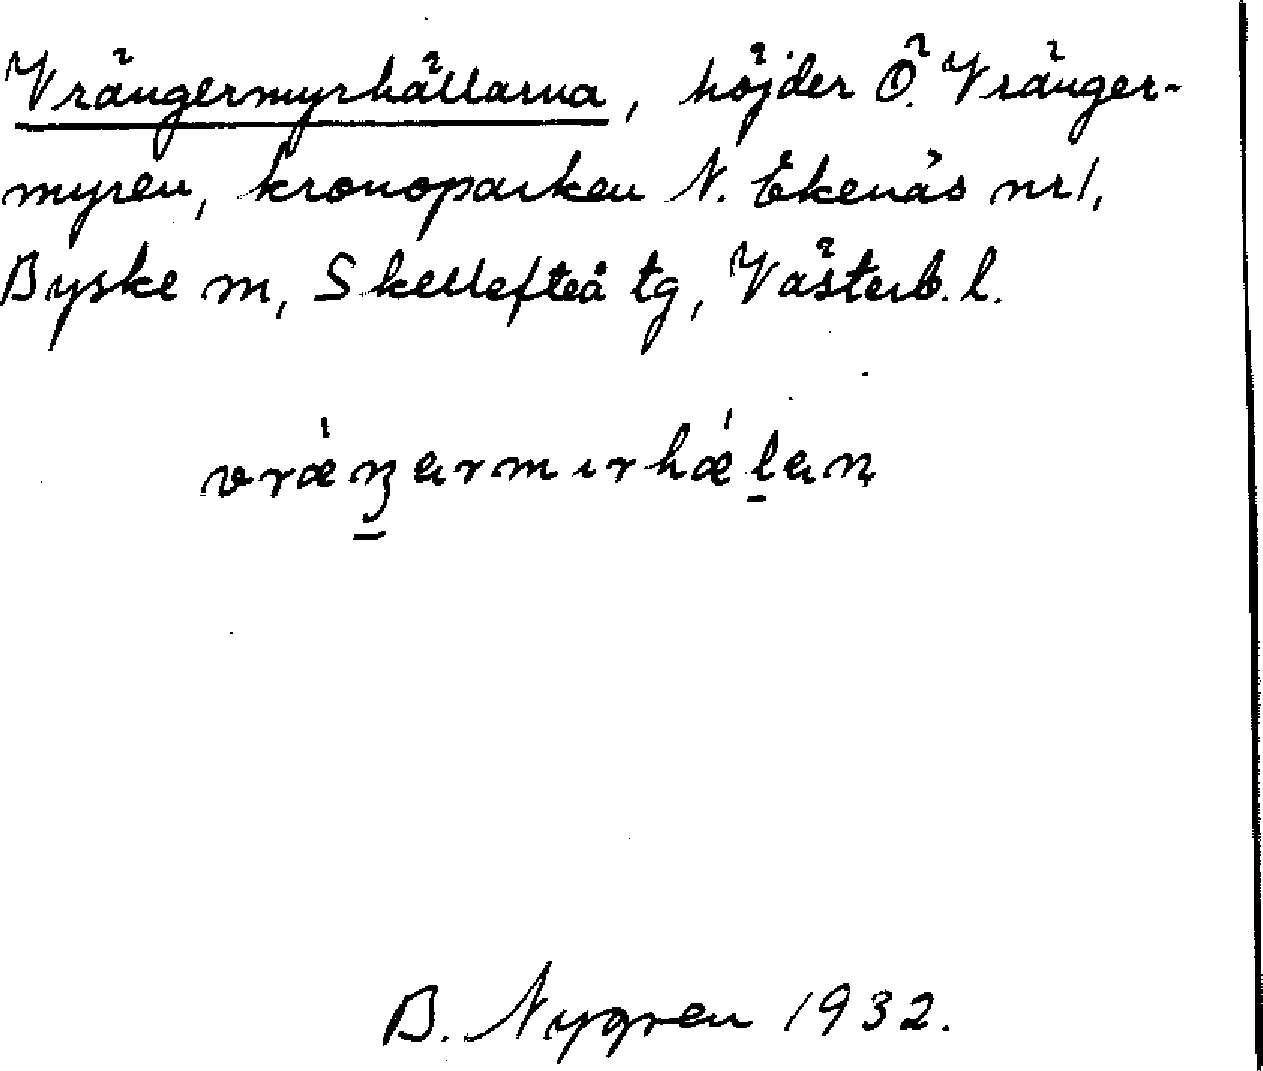 Vrängermyrhällarna, höjder Ö. Vränger-
myren, kronoparken N. Ekenäs nr 1,
Byske sn, Skellefteå tg, Västerb. l.
vrǽŋarmırhǽlaɳ
B. Nygren 1932.